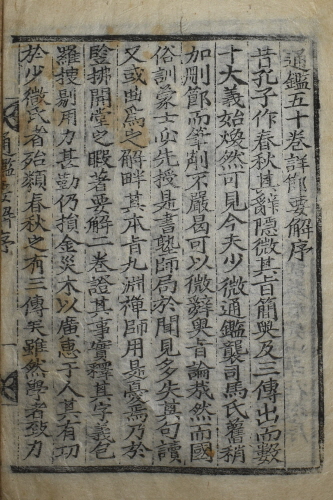 通鑑五十卷詳節要解序
昔孔子作春秋其辭隱微其旨簡奧及三傳出而數
十大義始煥然可見今夫少微通鑑襲司馬氏舊稍
加刪節而筆削不嚴曷可以微辭奧旨論哉然而國
俗訓蒙士必先授是書塾師局於聞見多失其句讀
又或曲爲之解畔其本旨九淵禪師用是憂焉乃於
監拂開堂之暇著要解二卷證其事實釋其字義包
羅捷剔用力甚勤仍損金災木以廣惠于人其有功
於少微氏者殆類春秋之有三傳矣雖然學者致力
通鑑要解序
一